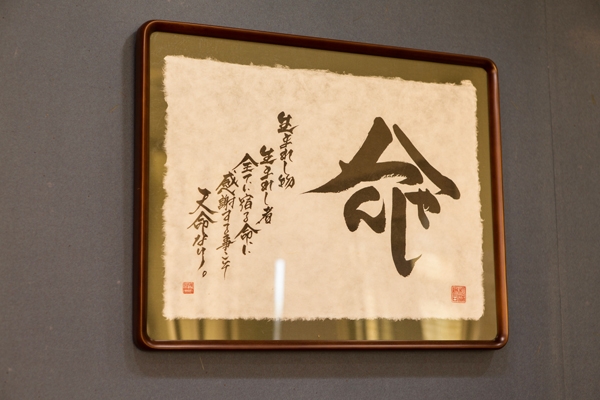 命
生まれし物
生まれし者
全てに宿る命に
感謝する事こそ
天命なり。